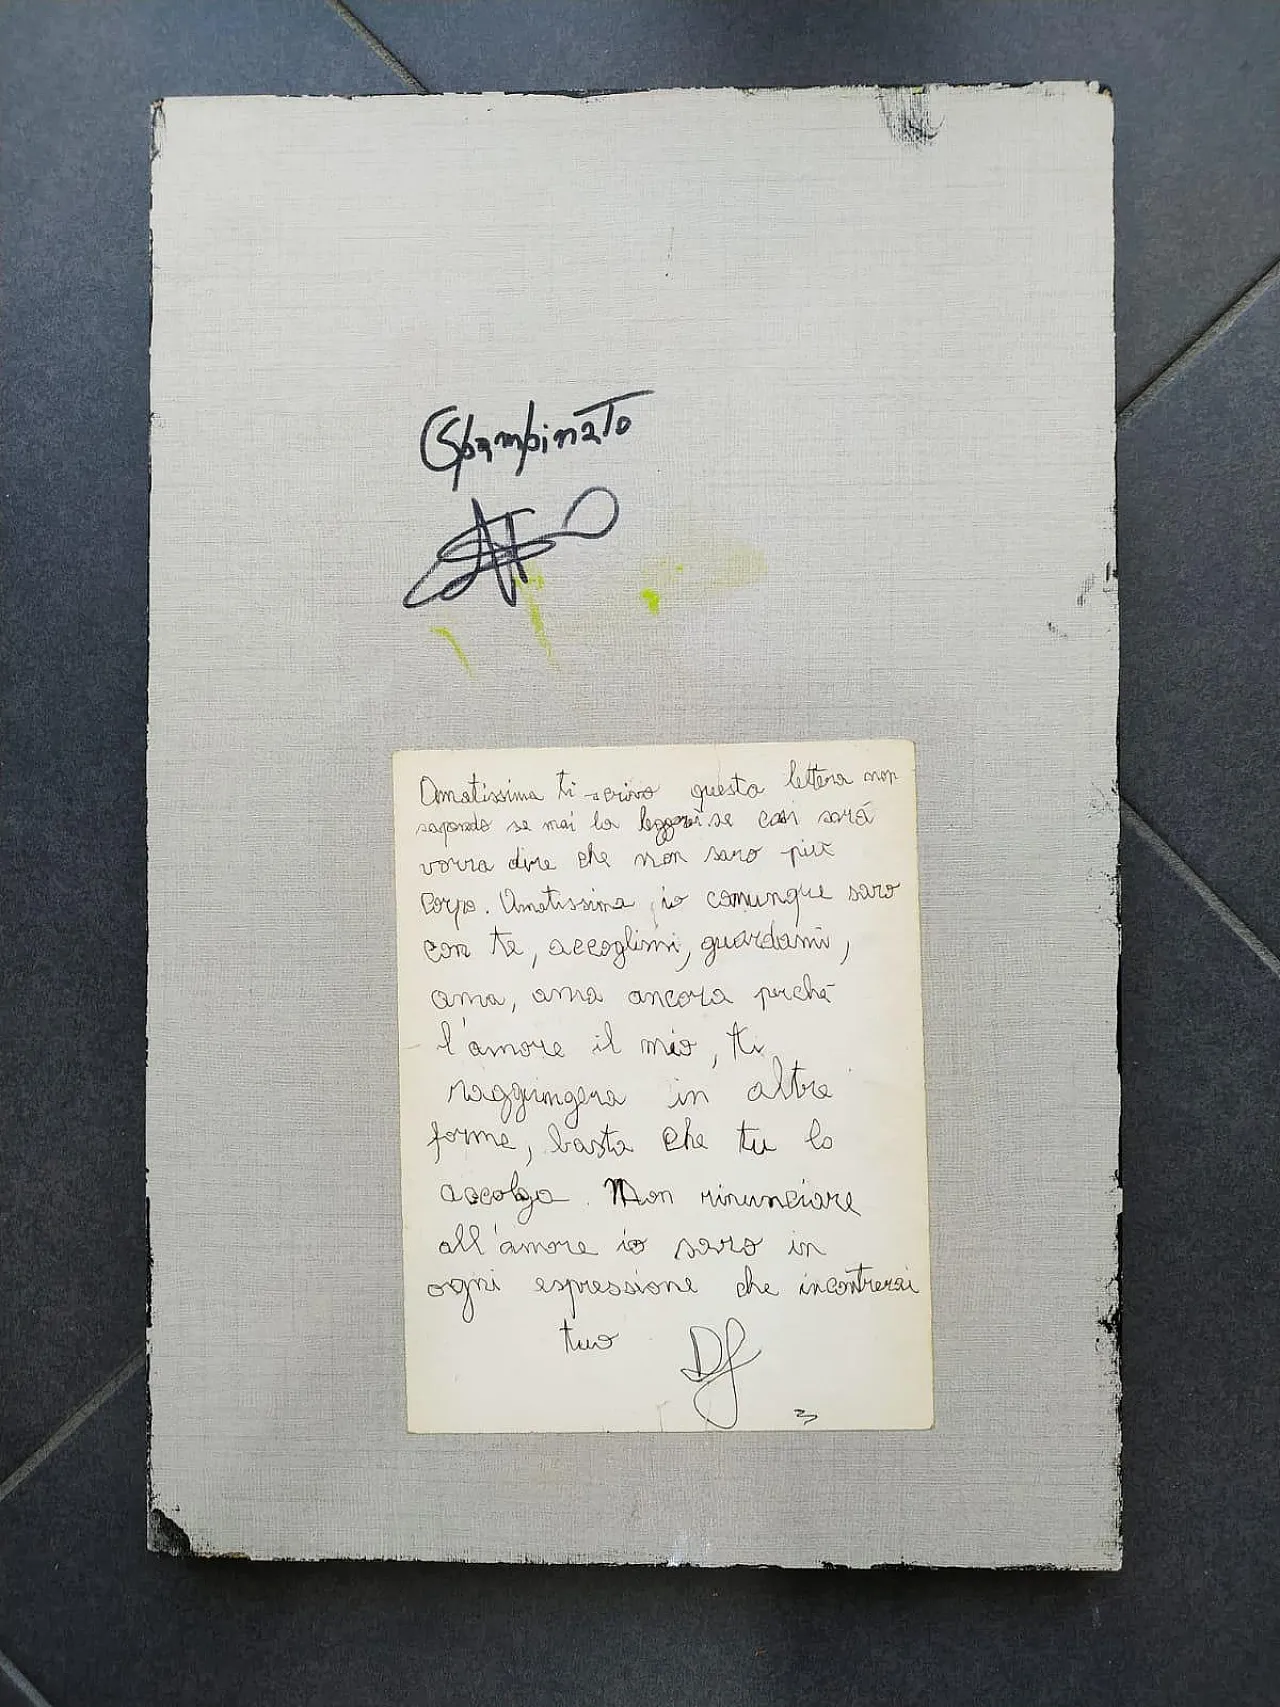 Sbambinato
Amatissima ti scrivo questa lettera non
sapendo se mai la leggerai se cosi sará
vorra dire che non saro più
corpo. Amatissima io comunque saro
con te, accoglimi, guardami,
ama, ama ancora perché
l'amore il mio, ti
raggiungera in altre
forme, basta che tu lo
accolga. Non rinunciare
all'amore io saro in
ogni espressione che incontrerai
tuo